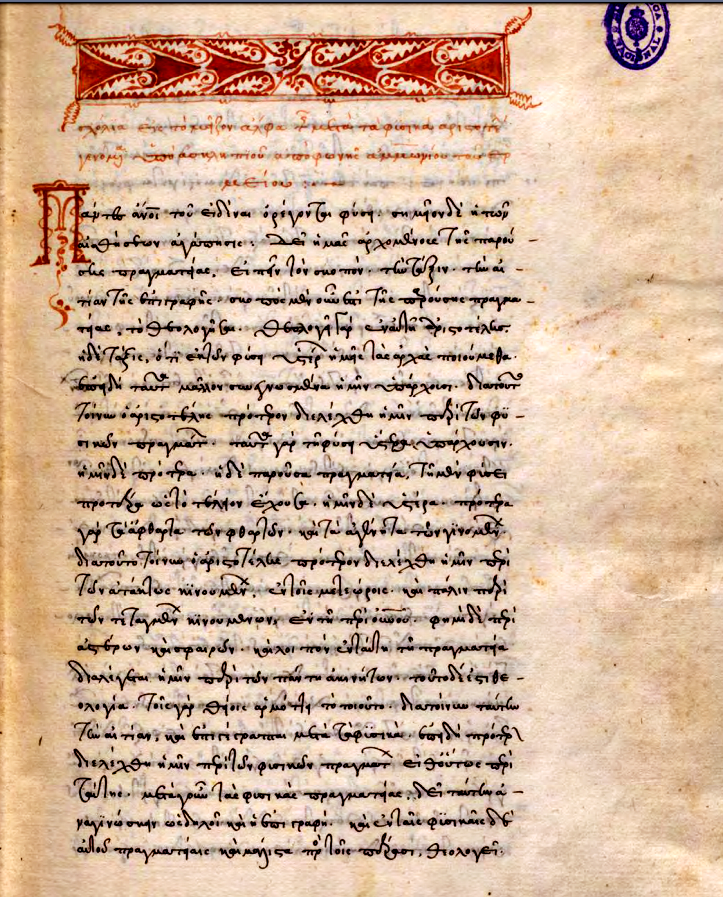 σχόλια εἰς τὸ μεῖζον ἄλφα τῆς μετὰ τὰ φυσικὰ ἀριστοτέλους
γενόμενα ὑπὸ ἀσκληπιοῦ ἀπὸ φωνῆς ἀμμωνίου τοῦ ἑρ
μείου :
Πάντες ἄνοι τοῦ εἰδέναι ὀρέγονται φύσει. σημεῖον δὲ ἡ τῶν
αἰσθήσεων ἀγάπησις. Δεῖ ἡμᾶς ἀρχομένους τῆς παρού-
σης πραγματείας, εἰπεῖν τὸν σκοπόν· τὴν τάξιν· τὴν αἰ-
τίαν τῆς ἐπιγραφῆς· σκοπὸς μὲν οὖν ἐστι τῆς παρούσης πραγμα-
τείας, τὸ θεολογῆσαι. θεολογεῖ γὰρ ἐν αὐτῇ ἀριστοτέλης.
ἡ δὲ τάξις, ὅτι ἐκ τῶν φύσει ὑστέρων ἡμεῖς τὰς ἀρχὰς ποιούμεθα.
ἐπειδὴ ταῦτα μᾶλλον συνεγνωσμένα ἡμῖν ὑπάρχουσι. διὰ τοῦτο
τοίνυν ὁ ἀριστοτέλης πρότερον διελέχθη ἡμῖν περὶ τῶν φυ-
σικῶν πραγμάτων· ταῦτα γὰρ τῇ φύσει ὕστερα ὑπάρχουσιν.
ἡμῖν δὲ πρότερα· ἡ δὲ παροῦσα πραγματεία, τῇ μὲν φύσει
προτέρα ὡς τὸ τέλειον ἔχουσα· ἡμῖν δὲ ὑστέρα· πρότερα
γὰρ τὰ ἄφθαρτα τῶν φθαρτῶν· καὶ τὰ ἀγένητα τῶν γινομένων.
διὰ τοῦτο τοίνυν ὁ ἀριστοτέλης πρότερον διελέχθη ἡμῖν περὶ
τῶν ἀτάκτως κινουμένων, ἐν τοῖς μετεώροις· καὶ πάλιν περὶ
τῶν τεταγμένων κινουμένων, ἐν τῇ περὶ οὐνοῦ· φημὶ δὲ περὶ
ἀστέρων καὶ σφαιρῶν· καὶ λοιπὸν ἐν ταύτῃ τῇ πραγματείᾳ
διαλέγεται ἡμῖν περὶ τῶν πάντῃ ἀκινήτων· τοῦτο δέ ἐστι θε-
ολογία. τοῖς γὰρ θείοις ἁρμόττει τὸ τοιοῦτο. διὰ τοίνυν ταύτην
τὴν αἰτίαν, καὶ ἐπιγέγραπται μετὰ τὰ φυσικά· ἐπειδὴ πρότερον
διελέχθη ἡμῖν περὶ τῶν φυσικῶν πραγμάτων εἶθ' οὕτως περὶ
ταύτης· μετὰ γοῦν τὰς φυσικὰς πραγματείας, δεῖ ταύτην ἀ-
ναγινώσκειν ὡς δηλοῖ καὶ ἡ ἐπιγραφή. καὶ ἐν ταῖς φυσικαῖς δὲ
αὐτοῦ πραγματείαις καὶ μάλιστα πρὸς τοῖς πέρασι, θεολογεῖ.